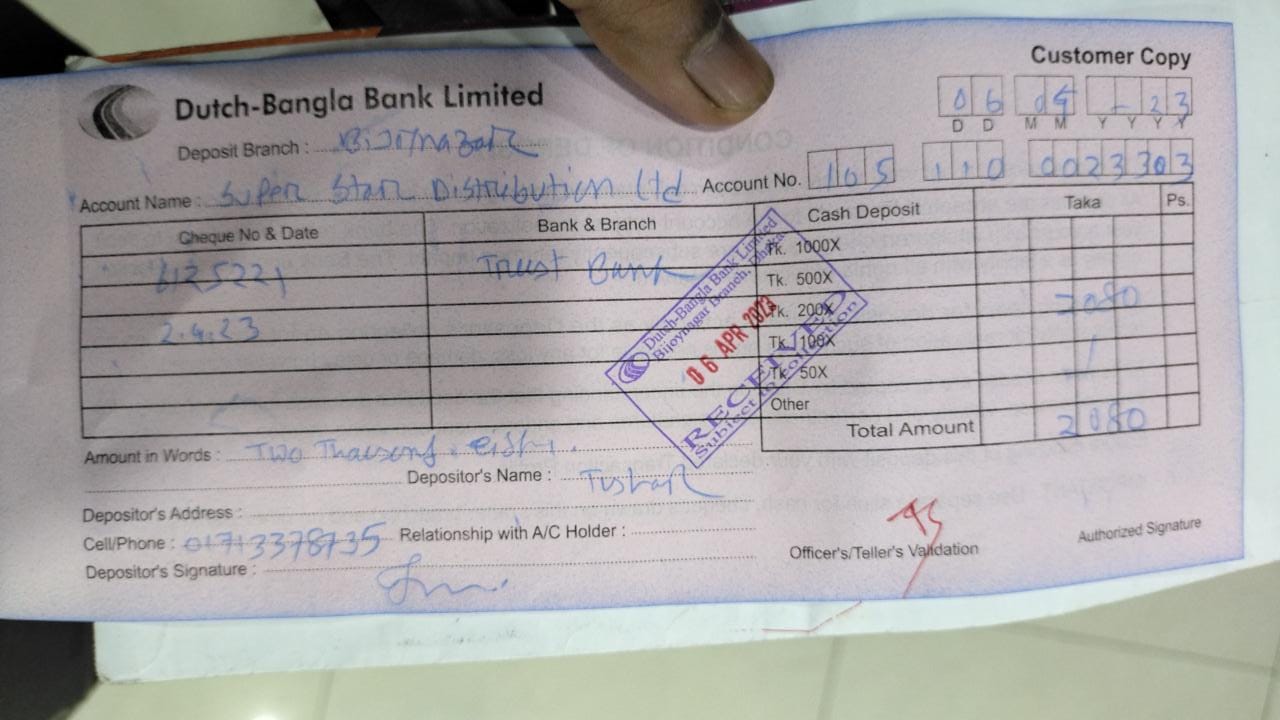 Customer Copy
Dutch-Bangla Bank Limited
06 04 - 23
D D M M Y Y Y Y
Deposit Branch : Bijoynazar
Account Name : Super Star Distribution Ltd Account No. 105 110 0023303
Cheque No & Date Bank & Branch Cash Deposit Taka Ps.
Tk. 1000X
6125221 Trust Bank
Tk. 500X
Tk. 200X 2080
2.4.23
Tk. 100X
Tk. 50X
Other
Total Amount 2080
Dutch-Bangla Bank Limited
Bijoynagar Branch, Dhaka
06 APR 2023
RECEIVED
Subject to Collection
Amount in Words : Two Thousand. eighty.
Depositor's Name : Tushar
Depositor's Address :
Cell/Phone : 01713378735 Relationship with A/C Holder :
Depositor's Signature :
Officer's/Teller's Validation Authorized Signature